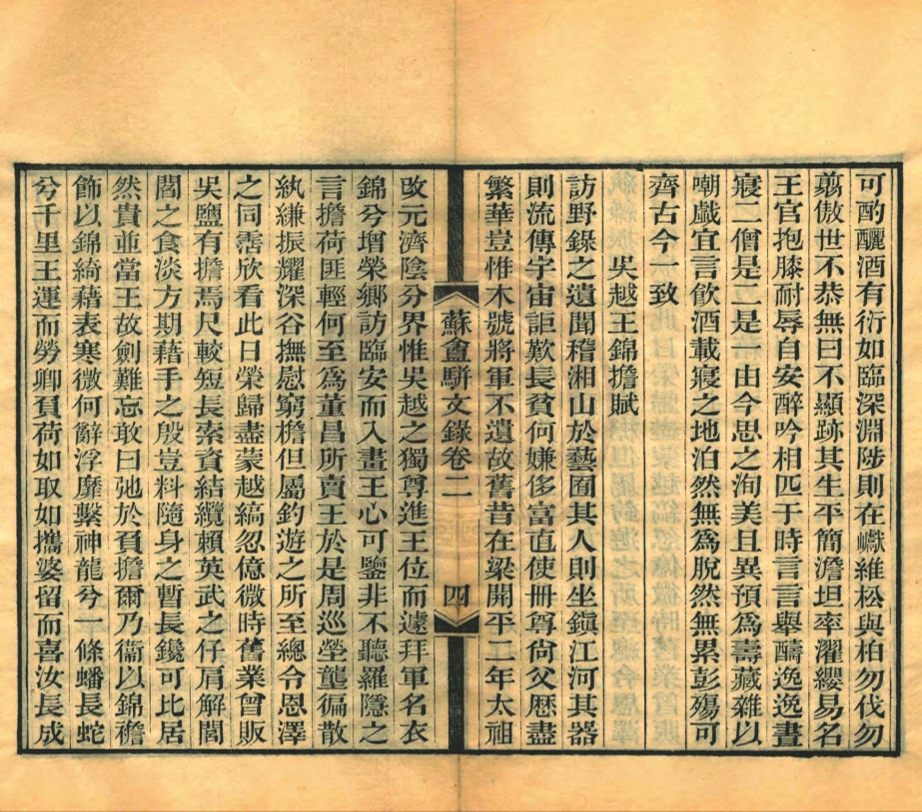 可酌釃酒有衍如臨深淵陟則在巘維松與柏勿伐勿
翦傲世不恭無曰不顯跡其生平簡澹坦率濯纓易名
王官抱膝耐辱自安醉吟相匹于時言言舉醻逸逸晝
寢二僧是二是一由今思之洵美且異預為壽藏雜以
嘲戲宜言飲酒載寢之地泊然無為脫然無累彭殤可
齊古今一致
吳越王錦擔賦
訪野錄之遺聞稽湘山於藝囿其人則坐鎮江河其器
則流傳宇宙詎歎長貧何嫌侈富直使冊尊尙父歷盡
繁華豈惟木號將軍不遺故舊昔在梁開平二年太祖
蘇盦駢文錄卷二
四
改元濟陰分界惟吳越之獨尊進王位而遽拜軍名衣
錦兮增榮鄉訪臨安而入畫王心可鑒非不聽羅隱之
言擔荷匪輕何至為董昌所賣王於是周巡塋壟徧散
執縑振耀深谷撫慰窮檐但屬釣遊之所至總令恩澤
之同霑欣看此日榮歸盡蒙越縞忽億微時舊業曾販
吳鹽有擔焉尺較短長索資結纜賴英武之仔肩解閭
閻之食淡方期藉手之殷豈料隨身之暫長鑱可比居
然貴並當王故劍難忘敢曰弛於負擔爾乃衞以錦襜
飾以錦綺藉表寒微何辭浮靡繫神龍兮一條蟠長蛇
兮千里王運而勞卿負荷如取如攜婆留而喜汝長成